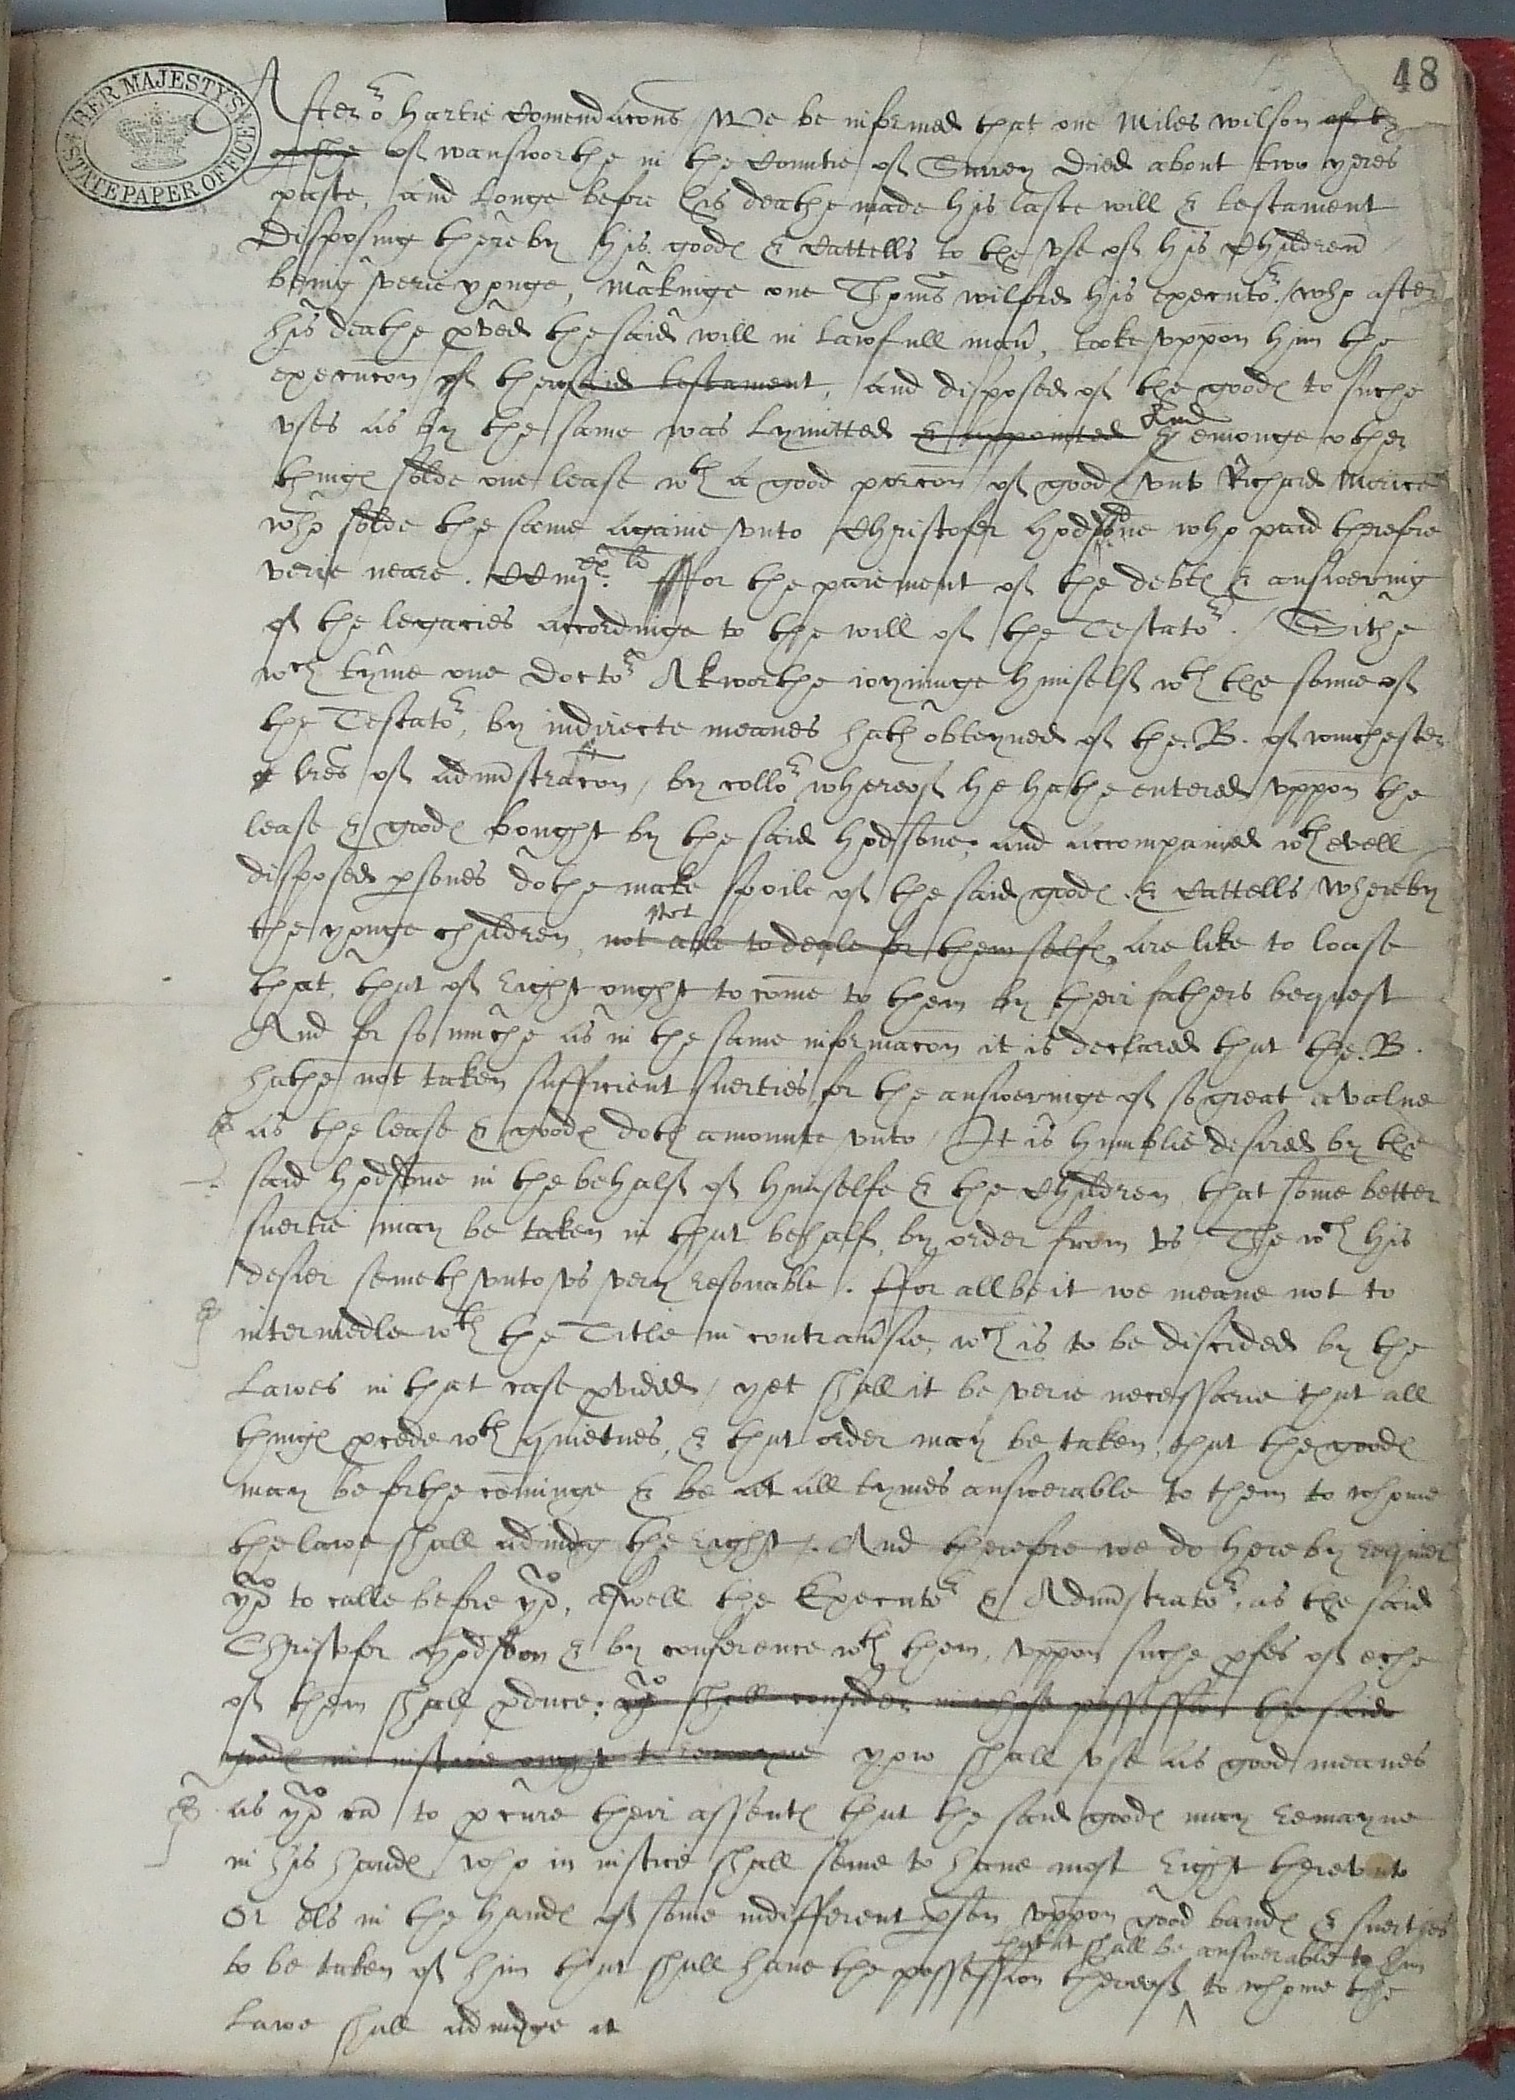 48
HER MAJESTY'S STATE PAPER OFFICE
After or hartie Comendacons We be informed that one Miles wilson of
of wansworthe in the Countie of Surrey died about two yeres
paste, and longe before his deathe made his laste will & testament
disposing thereby his goodes & Cattells to the vse of his Children
being verie yonge, makinge one Thoms wilford his executor. who after
his deathe proved the said will in lawfull mann, tooke vppon him the
execucon of the said testament, and disposed of the goodes to suche
vses as by the same was lymitted & appointed And emonge other
thinges solde one lease wth a good porcon of goodes vnto Richard Morice
who solde the same againe vnto Christofer Hodsone who paid therefore
verie neare. ffor the paiement of the debtes & answering
of the legacies accordinge to the will of the Testator. Sithe
wch tyme one doctor Akworthe ioyninge himself wth the sonne of
the Testator, by indirecte meanes hath obteyned of the B. of winchester
lres of administracon, by collor whereof he hathe entered vppon the
lease & goodes bought by the said Hodsone, and accompanied wth evell
disposed psones dothe make spoile of the said goodes & Cattells whereby
the yonge children, not able to deale for them selfes are like to loase
that, that of right ought to come to them by their fathers bequest
And for so muche as in the same informacon it is declared that the B.
hathe not taken sufficient suerties for the answeringe of so great a value
as the lease & goodes doth amounte vnto, It is humblie desired by the
said Hodsone in the behalf of himselfe & the Children, that some better
suertie may be taken in that behalf, by order from vs The wch his
desier semeth vnto vs very resonable. ffor all be it we meane not to
intermedle wth the Title in contraversie, wch is to be discided by the
Lawes in that case pvided, yet shall it be verie necessarie that all
thinges procede wth quietnes, & that order may be taken, that the goodes
may be forthe cominge & be at all tymes answerable to them to whome
the lawe shall adiudg the right. And therefore we do hereby requier
yo to calle before yo, aswell the Executor & Administrator, as the said
Christofer Hodson & by conference wth them, vppon suche profes as eche
of them shall produce: yo shall consider in whose possession the said
goodes in iustice ought to remayne yow shall vse as good meanes
as yo can to procure their assentes that the said goodes may remayne
in his handes who in iustice shall seme to have most right therevnto
Or els in the handes of some indifferent pson vppon good bandes & suerties
that it shall be answerable to him
to be taken of him that shall have the possession thereof to whome the
Lawe shall adiudge it